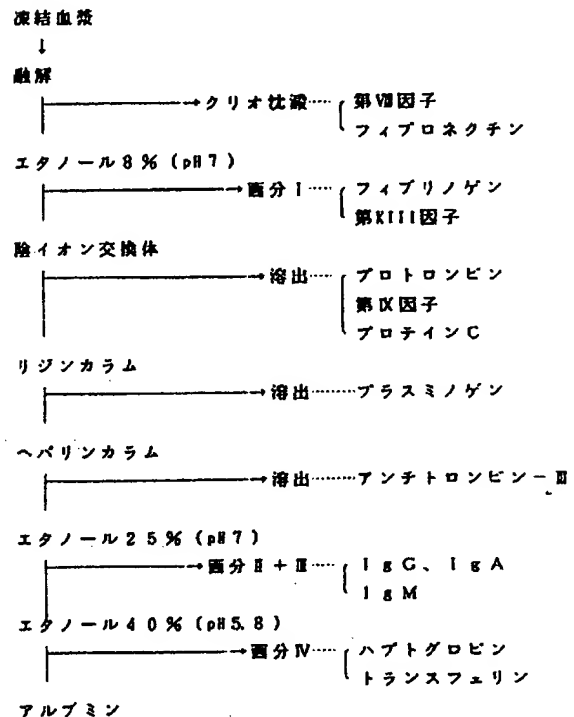 凍結血漿
↓
融解
→クリオ沈澱…… 第Ⅷ因子
フィブロネクチン
エタノール8%(pH7)
→画分Ⅰ…… フィブリノゲン
第XIII因子
陰イオン交換体
→溶出…… プロトロンビン
第Ⅸ因子
プロテインC
リジンカラム
→溶出………プラスミノゲン
ヘパリンカラム
→溶出………アンチトロンビン-Ⅲ
エタノール25%(pH7)
→画分Ⅱ+Ⅲ…… IgG、IgA
IgM
エタノール40%(pH5.8)
→画分Ⅳ…… ハプトグロビン
トランスフェリン
アルブミン